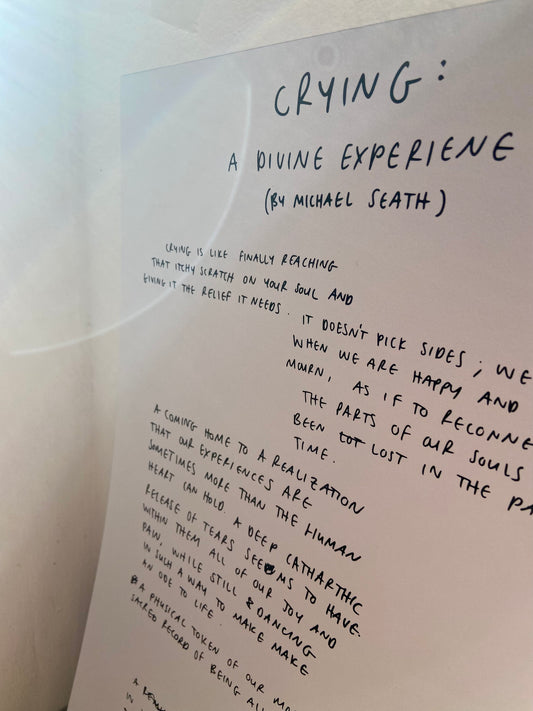 CRYING:
A DIVINE EXPERIENE
(BY MICHAEL SEATH)
CRYING IS LIKE FINALLY REACHING
THAT ITCHY SCRATCH ON YOUR SOUL AND
GIVING IT THE RELIEF IT NEEDS.
IT DOESN'T PICK SIDES; WE
WHEN WE ARE HAPPY AND
MOURN, AS IF TO RECONNE
THE PARTS OF OUR SOULS
BEEN LOST IN THE PA
TIME.
A COMING HOME TO A REALIZATION
THAT OUR EXPERIENCES ARE
SOMETIMES MORE THAN THE HUMAN
HEART CAN HOLD. A DEEP CATHARTHIC
RELEASE OF TEARS SEEMS TO HAVE
WITHIN THEM ALL OF OUR JOY AND
PAIN, WHILE STILL DANCING
IN SUCH A WAY TO MAKE MAKE
AN ODE TO LIFE.
A PHYSICAL TOKEN OF OUR
SACRED RECORD OF BEING
A
IN